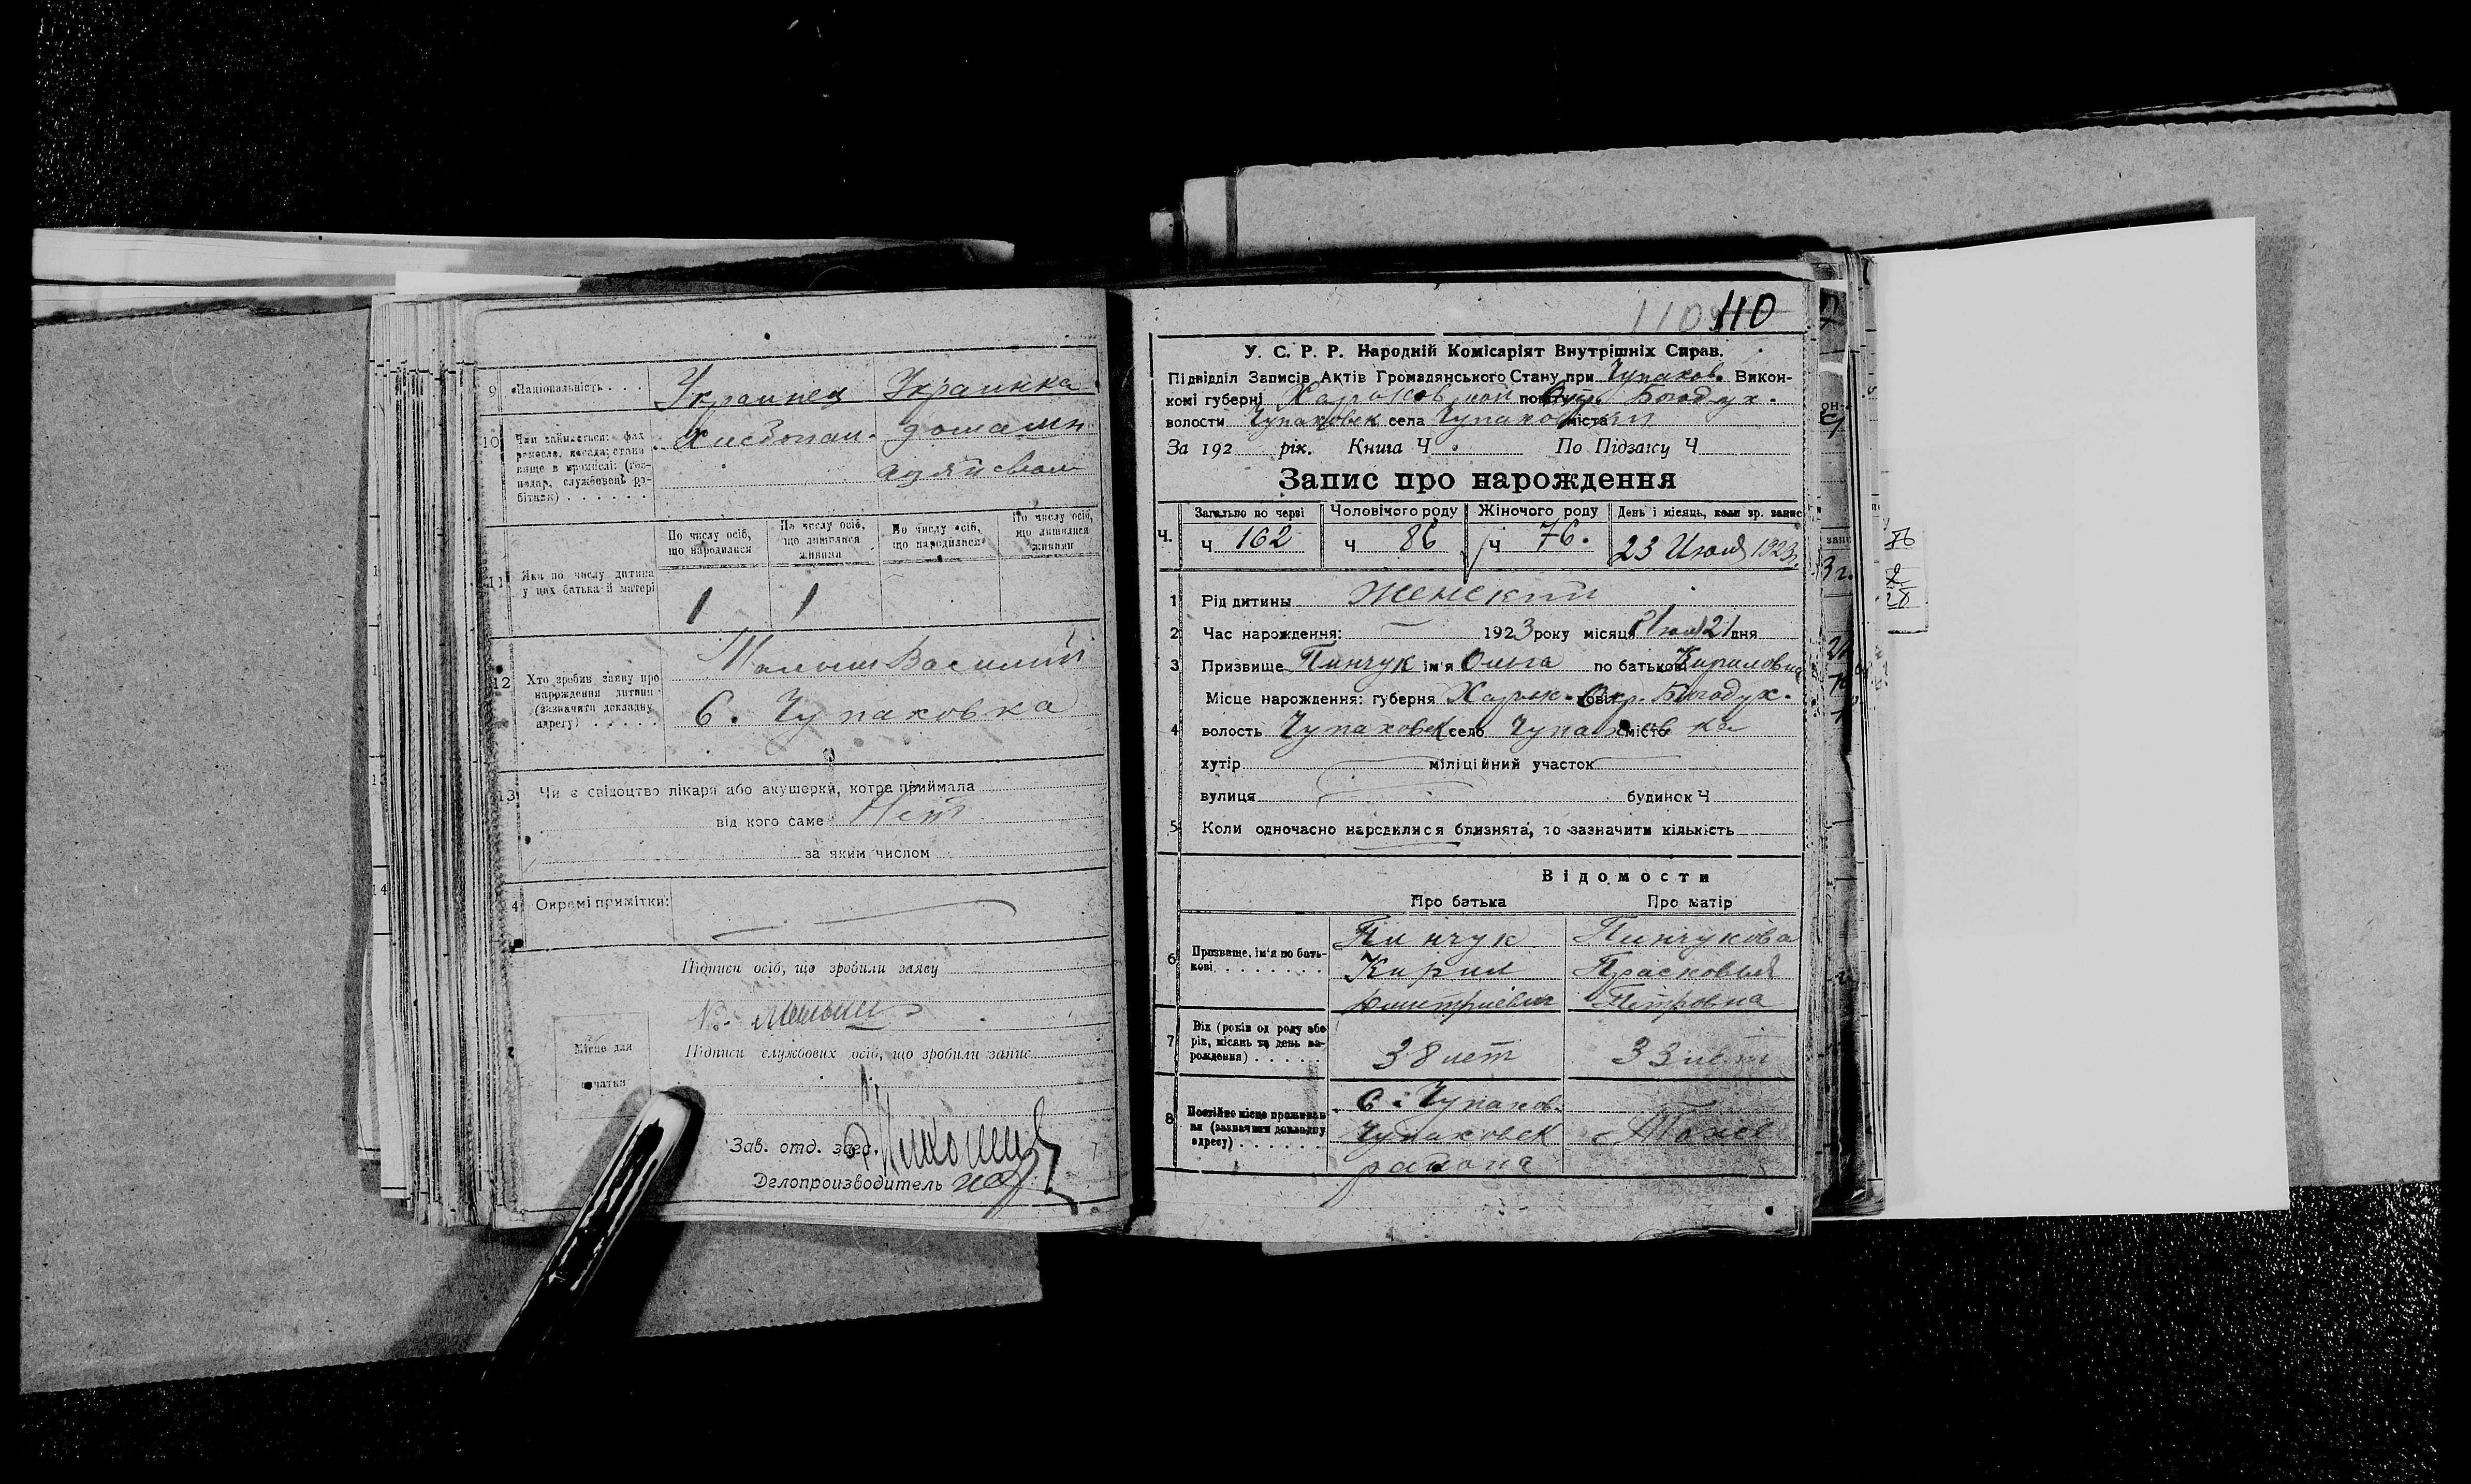 9 Національність . . . Украинец Украинка
10 Чим займається: фах Хлебопаш. домашн
ремесло, посада; стано-
вище в промислі: (гос-
подар, службовець ро- хозяйством
бітник) . . . . . .
По числу осіб, що народилися По числу осіб, що лишилися живими По числу осіб, що народилися По числу осіб, що лишилися живими
11 Яка по числу дитина
у цих батька й матері 1 1
12 Хто зробив заяву про Василий
нарождення дитини
(визначити докладну С. Чупаховка
адресу) . . . . .
13 Чи є свідоцтво лікаря або акушерки, котра приймала
від кого саме Нет
за яким числом
Окремі примітки:
Підписи осіб, що зробили заяву
В.
Місце для Підписи службових осіб, що зробили запис
печатки
Зав. отд. загс.
Делопроизводитель
110 110
У. С. Р. Р. Народній Комісаріят Внутрішніх Справ.
Підвідділ Записів Актів Громадянського Стану при Чупахов. Викон-
комі губерні Харьковской повіту Окр. Богодух.
волости Чупаховск села Чупаховки міста
За 192 рік. Книга Ч По Підзагсу Ч
Запис про нарождення
Загально по черзі Чоловічого роду Жіночого роду День і місяць, коли зр. запис
Ч. Ч 162 Ч 86 Ч 76. 23 Июля 1923 г.
1 Рід дитины Женский
2 Час нарождення: 1923 року місяця Июля 21 дня
3 Призвище Пинчук ім'я Ольга по батькові Кириловна
Місце нарождення: губерня Харьк. повіт Окр. Богодух.
4 волость Чупаховск село Чупаховка місто
хутір міліційний участок
вулиця будинок Ч
5 Коли одночасно народилися близнята, то зазначити кількість
Відомости
Про батька Про матір
6 Призвище, ім'я по бать- Пинчук Пинчукова
кові . . . . . . . . Кирил Прасковья
Дмитриевич Петровна
7 Вік (років од роду або
рік, місяць та день на- 38 лет 33 лет
рождення) . . . . . .
8 Постійне місце проживан- С. Чупахов.
ня (зазначити докладну Чупаховск Тоже
адресу) . . . . . . района